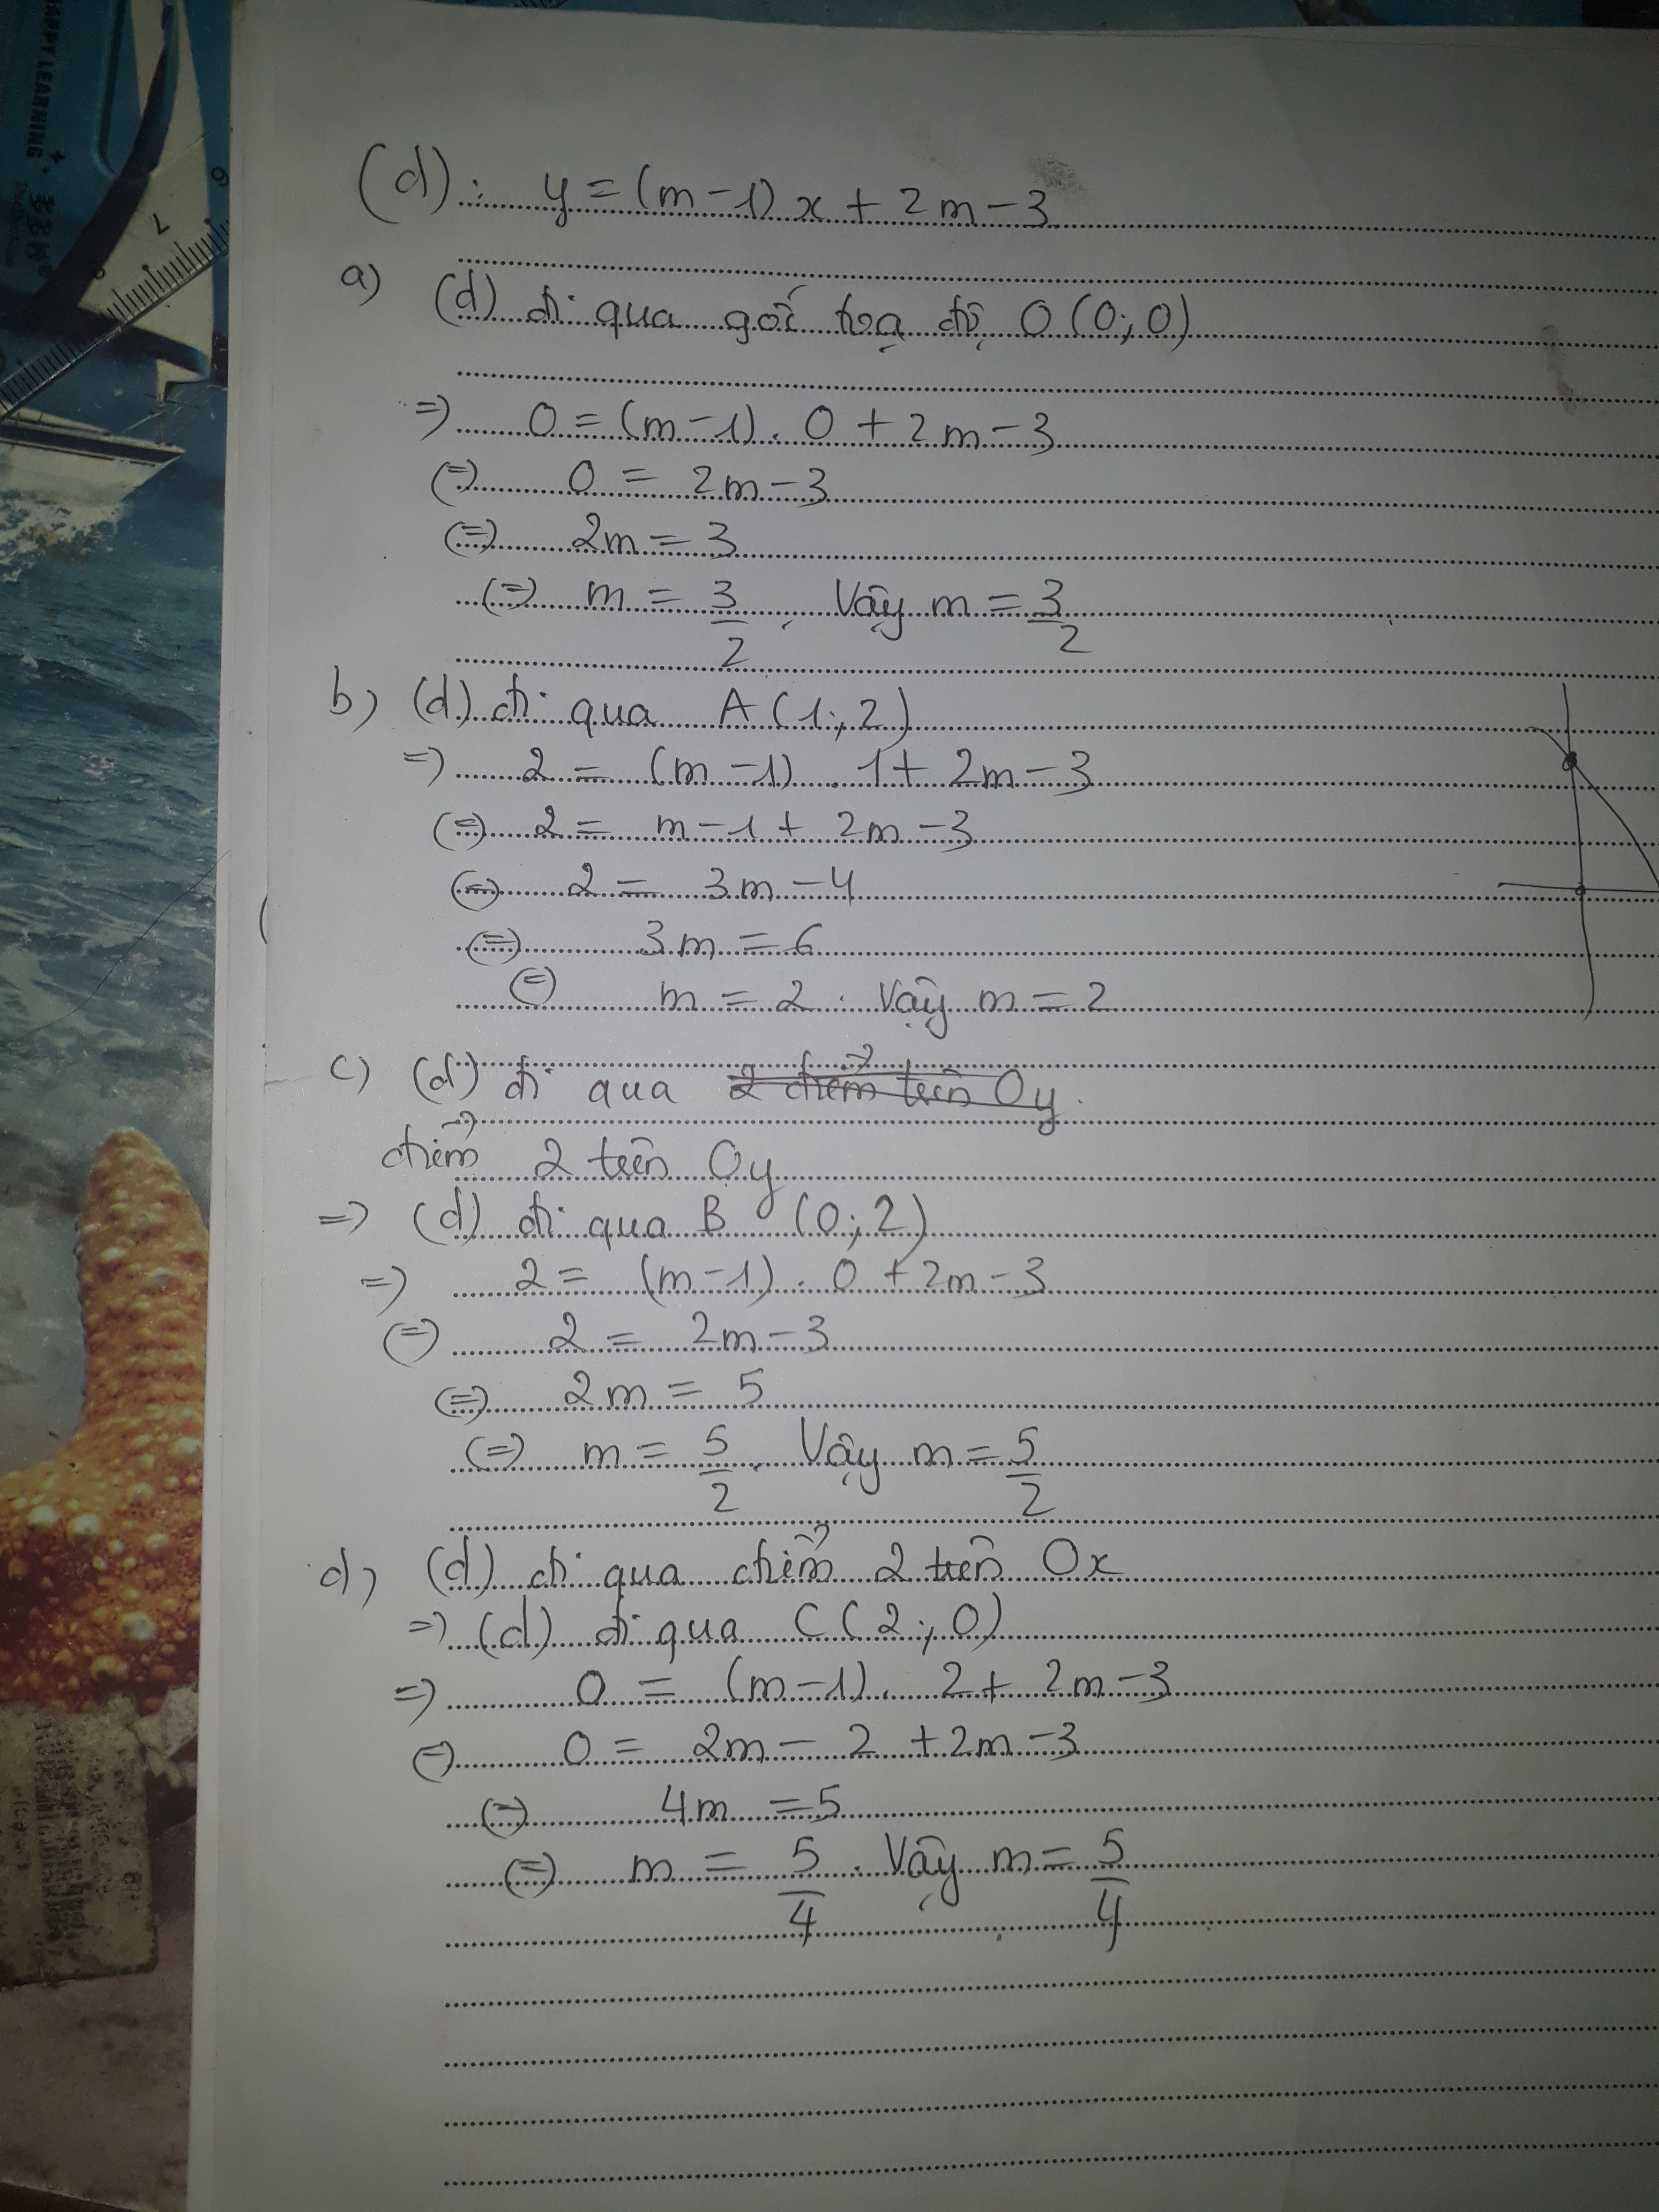 APPY LEARNING
7
6
(d): y = (m-1)x + 2m-3
a) (d) đi qua gốc tọa độ O(0;0)
=> 0 = (m-1).0 + 2m-3
(=) 0 = 2m-3
(=) 2m = 3
(=) m = 3/2. Vậy m = 3/2
b) (d) đi qua A(1;2)
=> 2 = (m-1).1 + 2m-3
(=) 2 = m-1 + 2m-3
(=) 2 = 3m-4
(=) 3m = 6
(=) m = 2. Vậy m = 2
c) (d) đi qua 2 điểm trên Oy.
điểm 2 trên Oy
=> (d) đi qua B (0;2)
=> 2 = (m-1).0 + 2m-3
(=) 2 = 2m-3
(=) 2m = 5
(=) m = 5/2. Vậy m = 5/2
d) (d) đi qua điểm 2 trên Ox
=> (d) đi qua C(2;0)
=> 0 = (m-1).2 + 2m-3
(=) 0 = 2m - 2 + 2m-3
(=) 4m = 5
(=) m = 5/4. Vậy m = 5/4